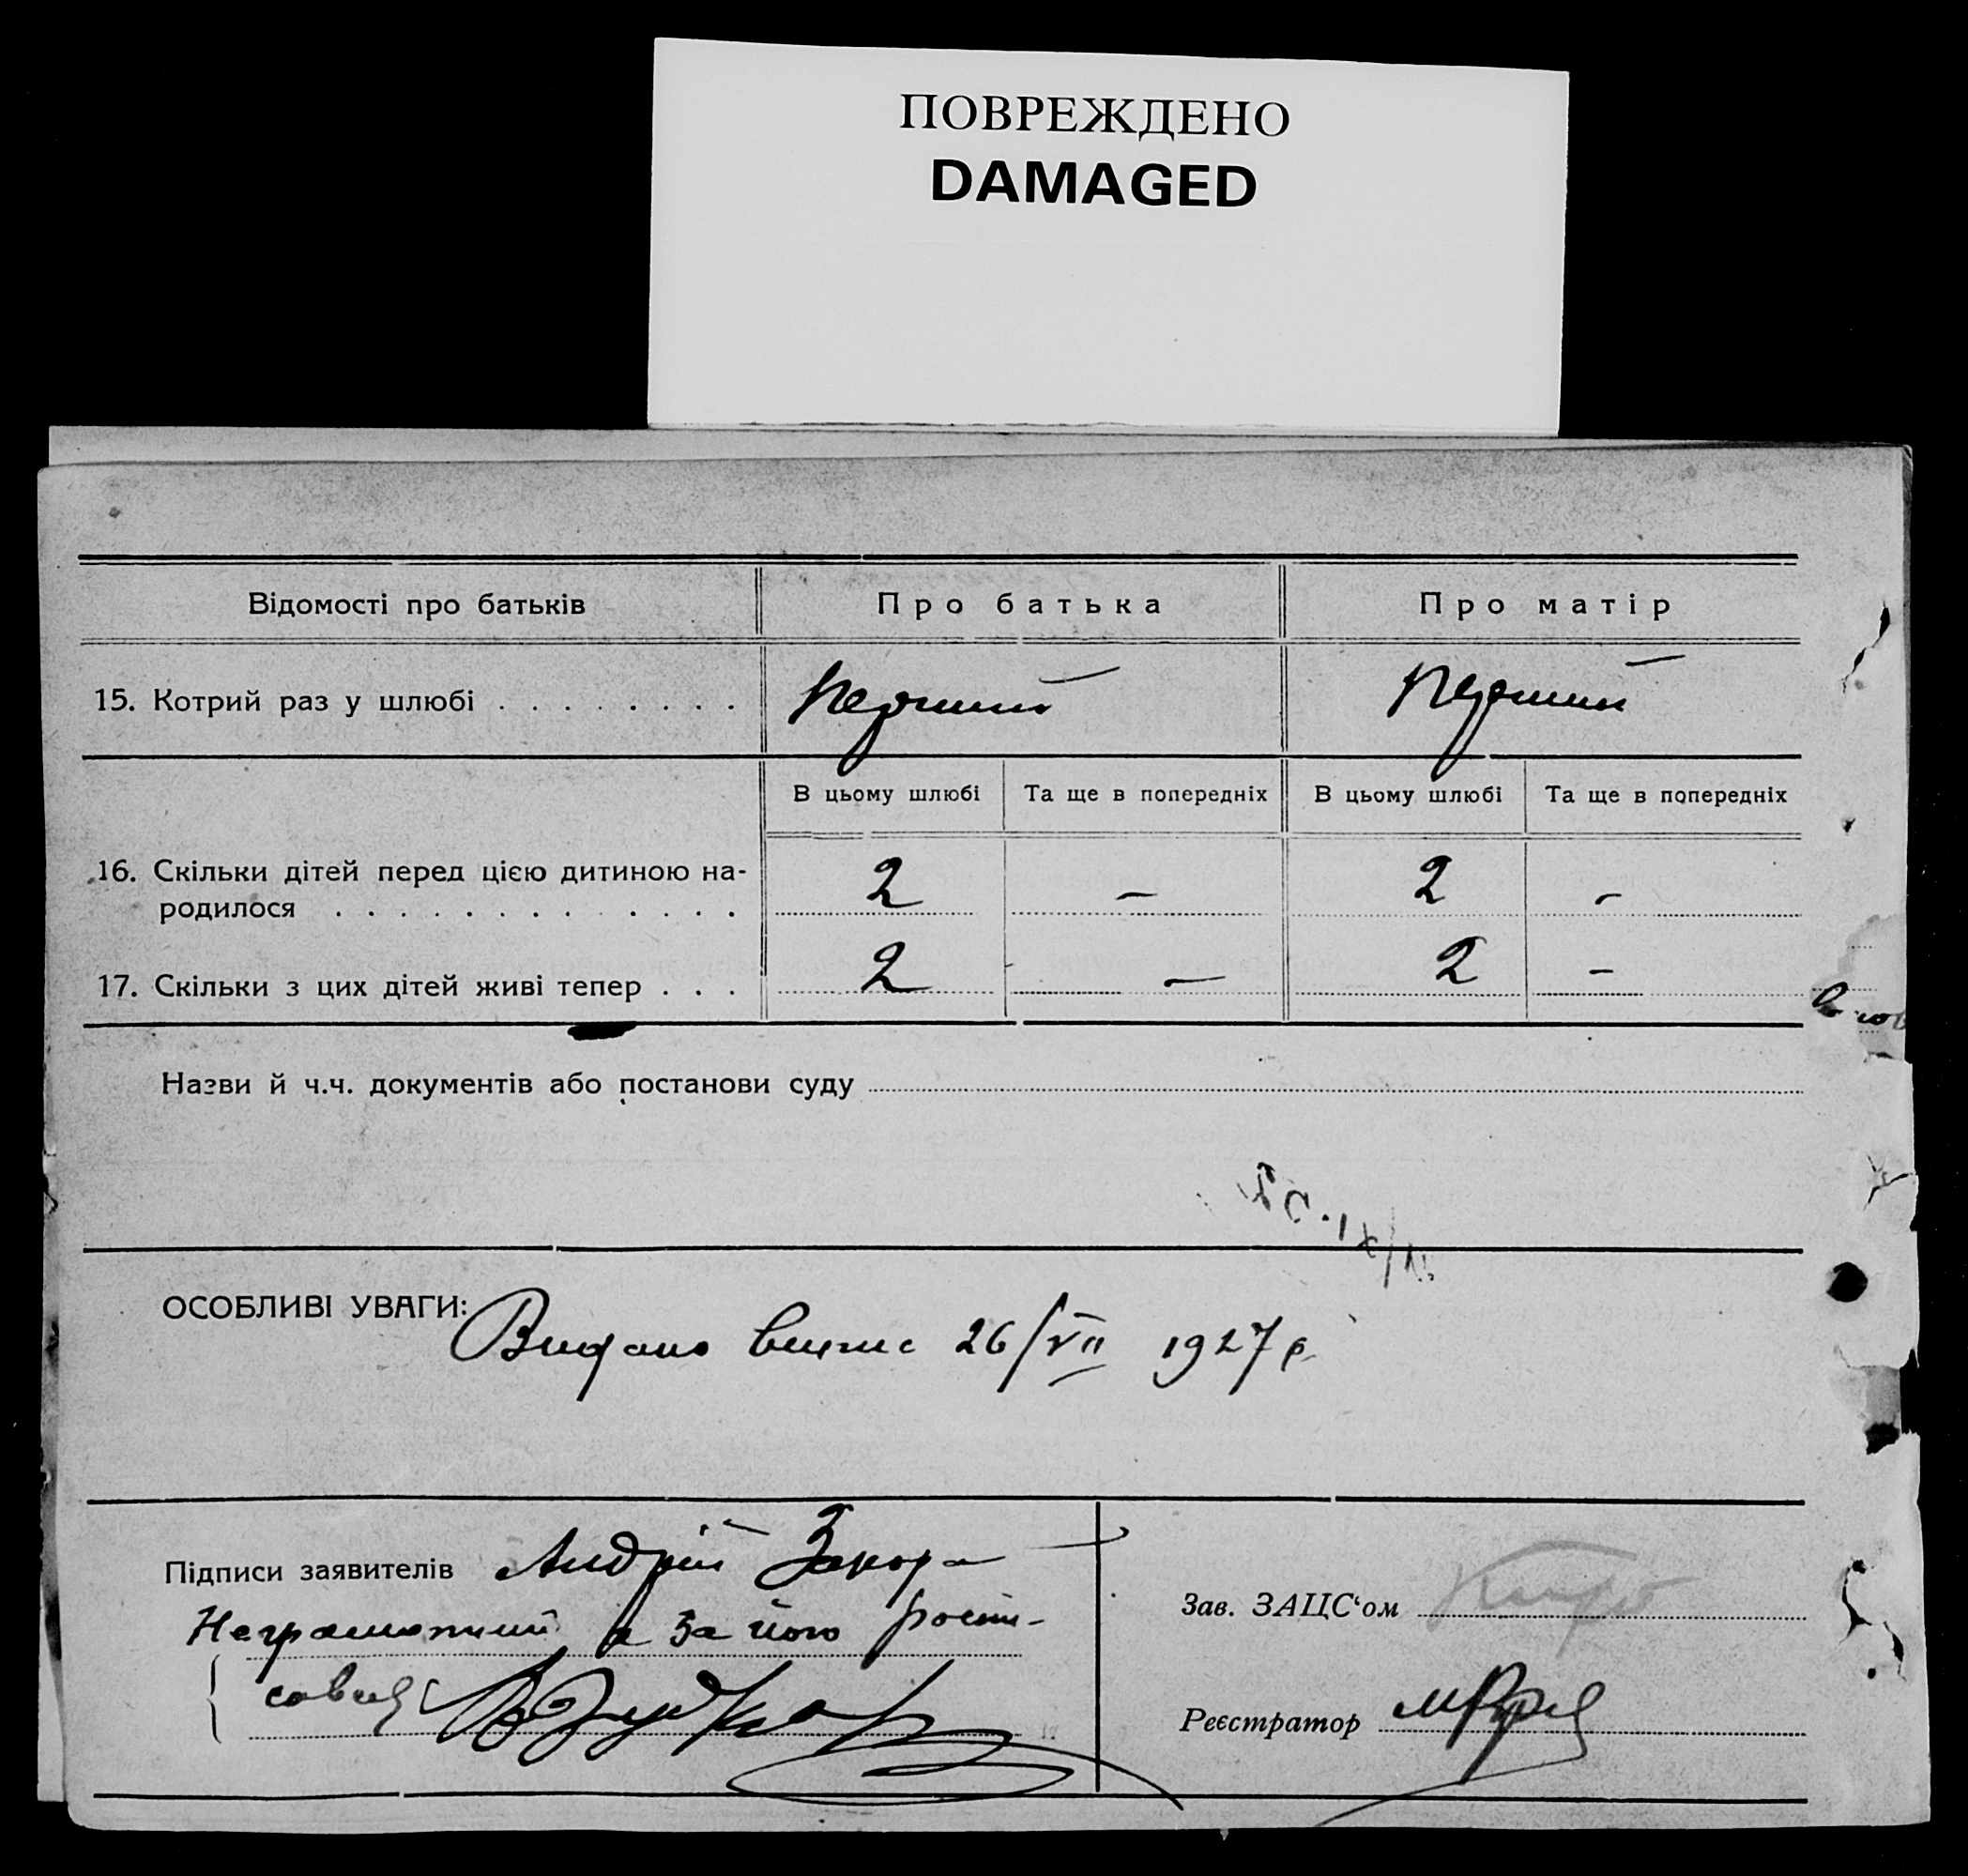 ПОВРЕЖДЕНО
DAMAGED
Відомості про батьків Про батька Про матір
15. Котрий раз у шлюбі . . . . . . . . Перший Перший
В цьому шлюбі Та ще в попередніх В цьому шлюбі Та ще в попередніх
16. Скільки дітей перед цією дитиною на-
родилося . . . . . . . . . . . . . 2 – 2 –
17. Скільки з цих дітей живі тепер . . . 2 – 2 –
Назви й ч.ч. документів або постанови суду
ОСОБЛИВІ УВАГИ: Видано випис 26/VII 1927 р.
Підписи заявителів Андрій
Неграмотний а за його роспи-
Зав. ЗАЦС'ом
Реєстратор